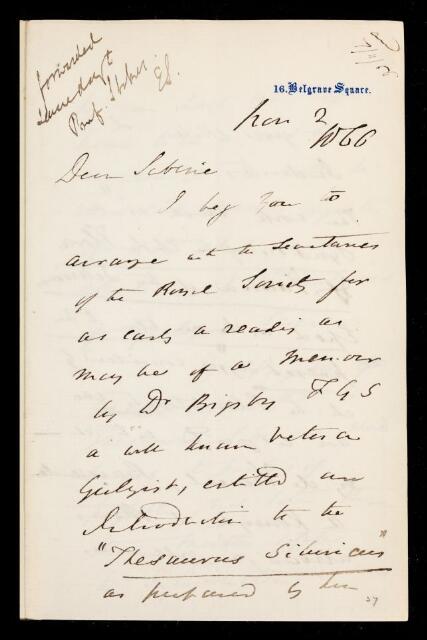 forwarded
same day to
Prof. Stokes.
ES.
2/11/66
16. Belgrave Square.
Nov 2
1866
Dear Sabine
I beg you to
arrange with the Secretaries
of the Royal Society for
as early a reading as
may be of a Memoir
by Dr Bigsby F G S
a well known veteran
Geologist, entitled an
Introduction to the
"Thesaurus Siluricus"
as prepared by him
27